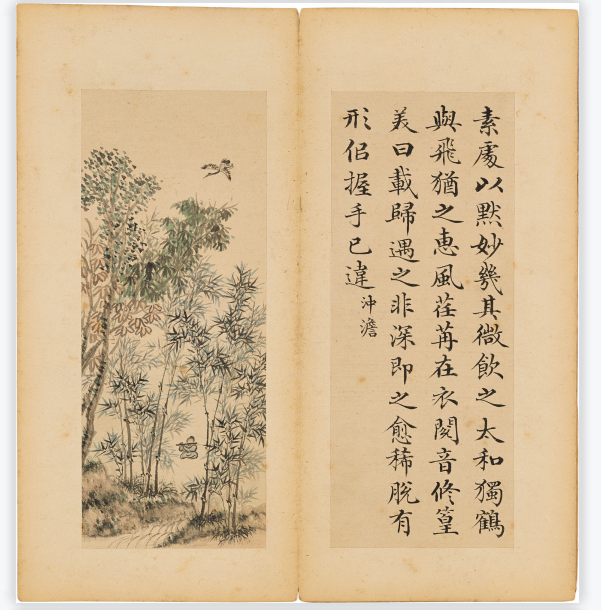 素處以默妙幾其微飲之太和獨鶴
與飛猶之恵風荏苒在衣閱音修篁
美曰載歸遇之非深即之愈稀脫有
形佀握手已違
沖澹